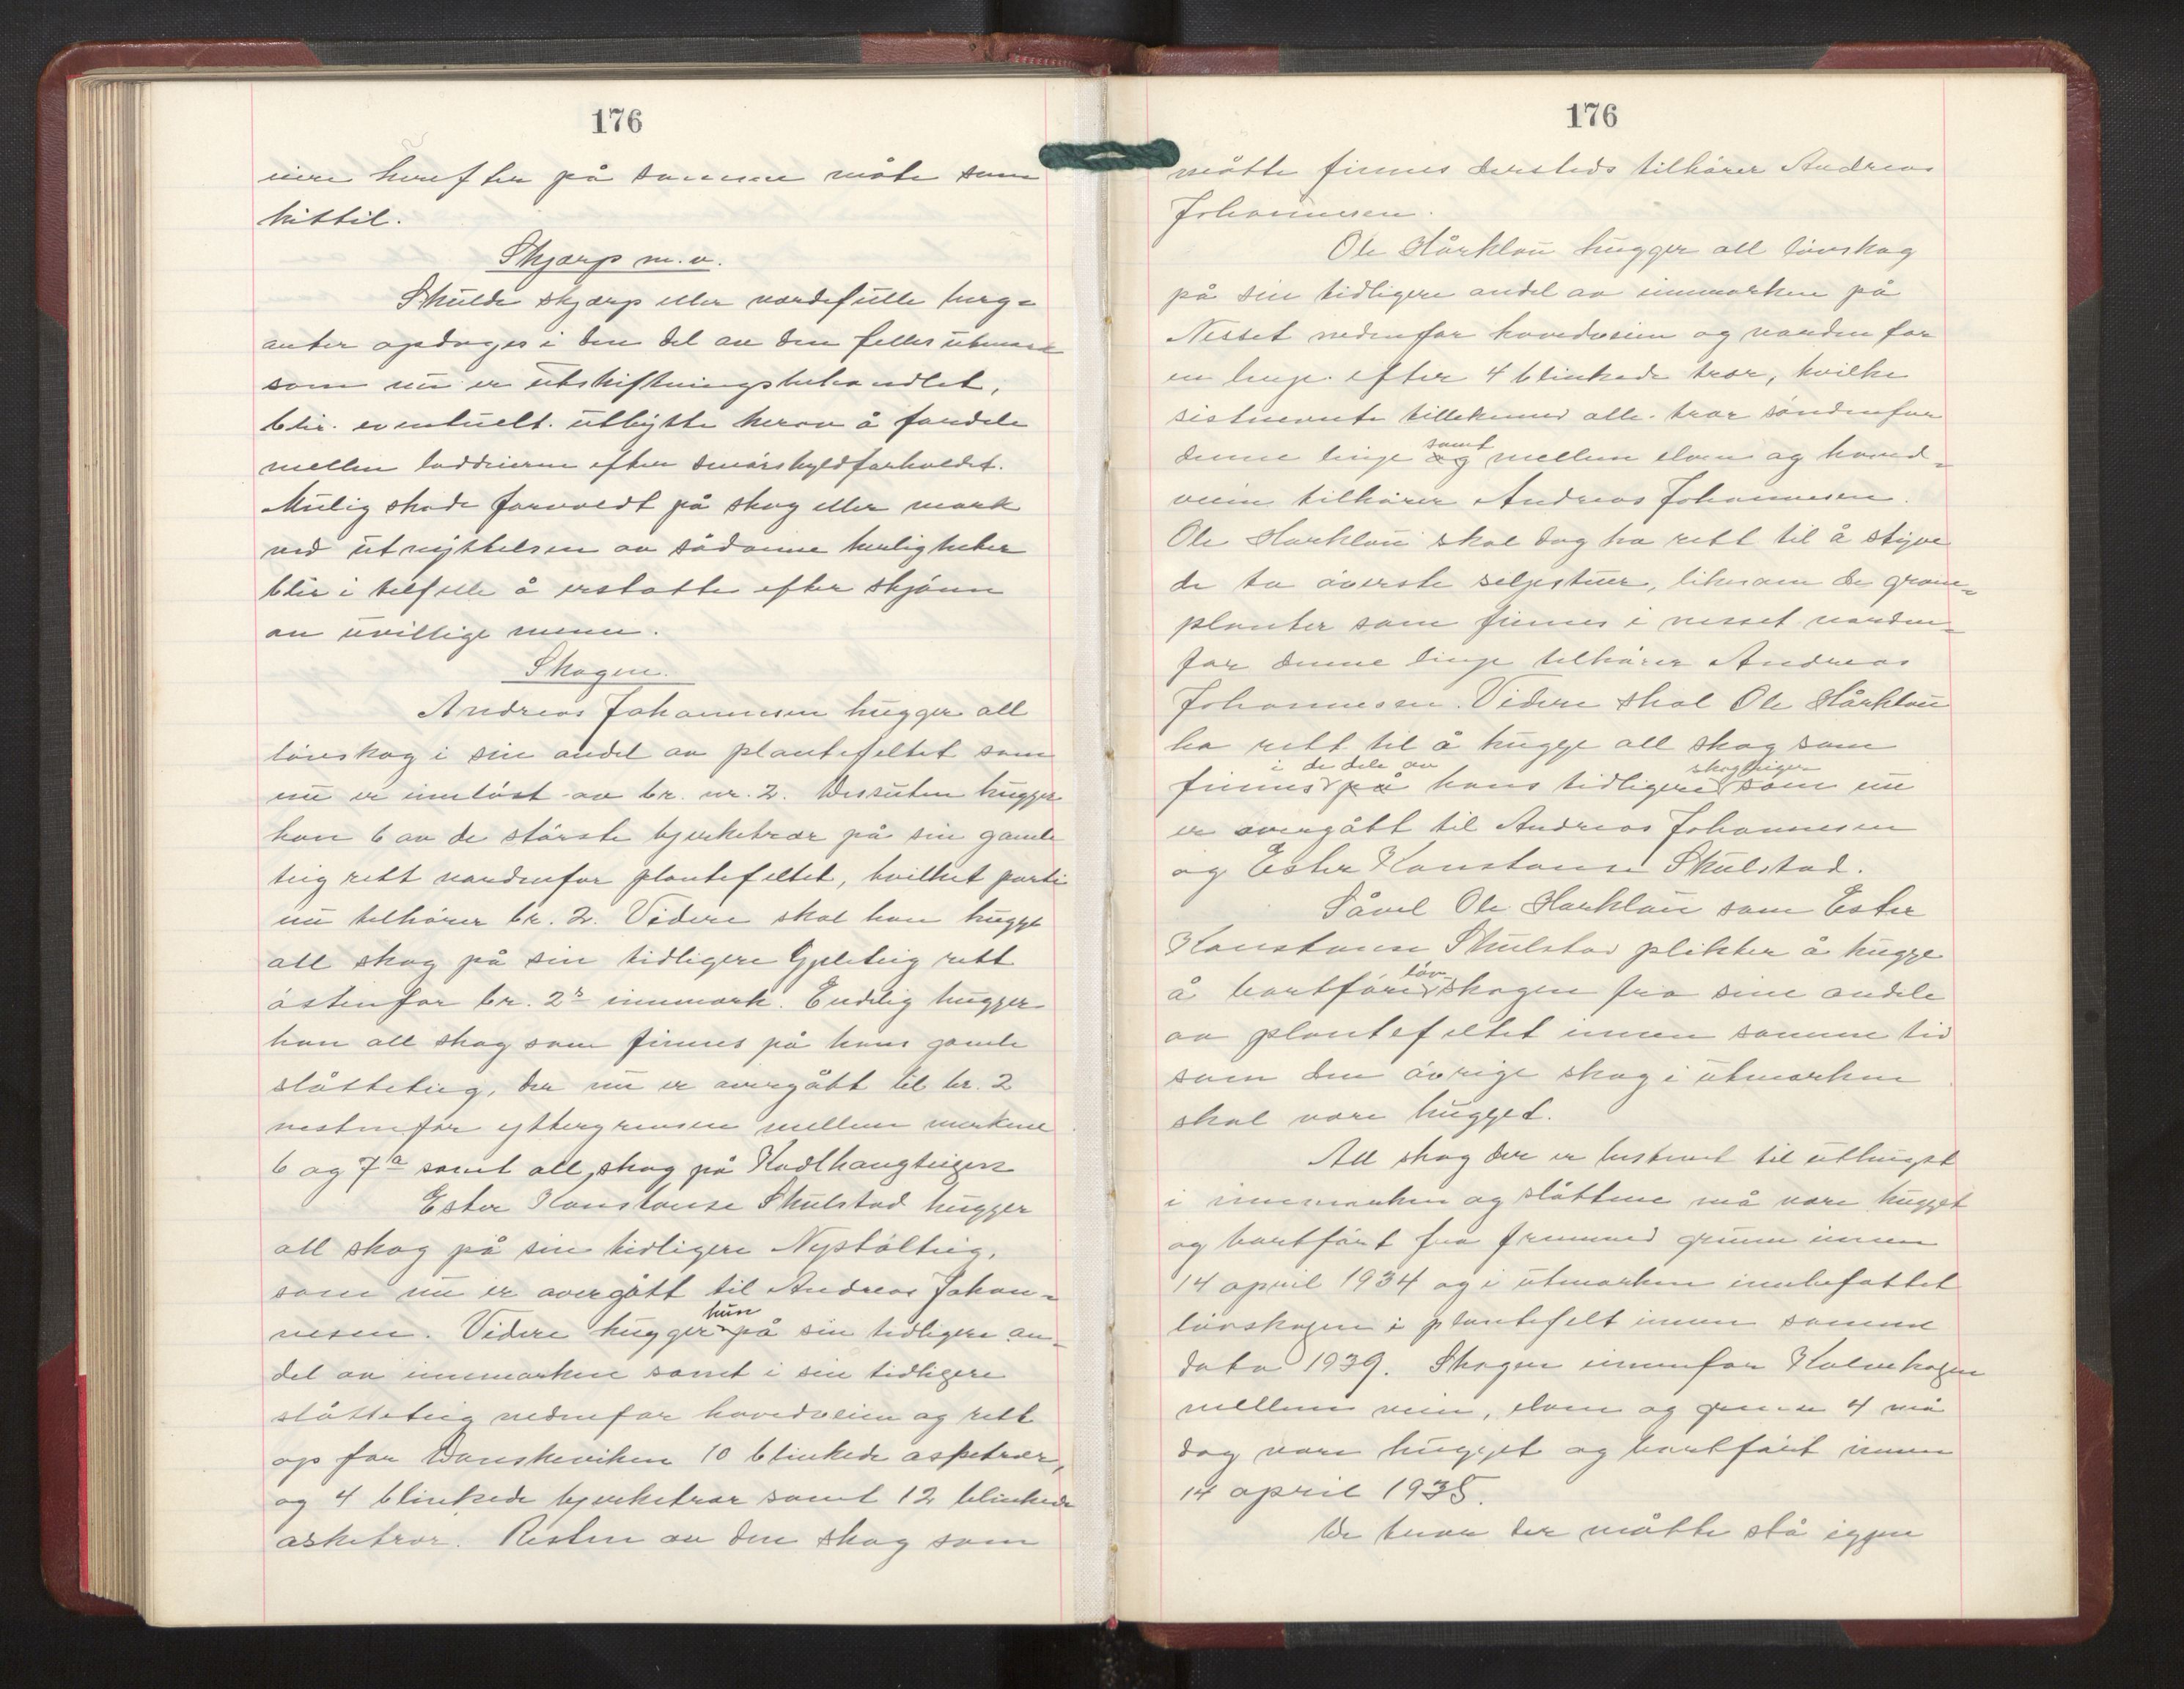 176
eiere herefter på samme måte som
hittil.
Skjærp m.v.
Skulde skjærp eller verdefulle berg-
arter opdages i den del av den felles utmark
som nu er utskiftningsbehandlet,
blir eventuelt utbytte herav å fordele
mellem loddeierne efter smørskyldforholdet.
Mulig skade forvoldt på skog eller mark
ved utnyttelsen av sådanne herligheter
blir i tilfelle å erstatte efter skjønn
av uvillige menn.
Skogen.
Andreas Johannesen hugger all
løvskog i sin andel av plantefeltet som
nu er innløst av br. nr. 2. Dessuten hugger
han 6 av de største bjerketrær på sin gamle
teig rett nordenfor plantefeltet, hvilket parti
nu tilhører br. 2. Videre skal han hugge
all skog på sin tidligere Gjeleteig rett
østenfor br. 2s innmark. Endelig hugger
han all skog som finnes på hans gamle
slåtteteig, der nu er overgått til br. 2
vestenfor yttergrensen mellem merkene
6 og 7a samt all skog på Kadlhaugteigen
Ester Konstanse Skulstad hugger
all skog på sin tidligere Nystølteig,
som nu er overgått til Andreas Johan-
nesen. Videre hugger hun på sin tidligere an-
del av innmarken samt i sin tidligere
slåtteteig nedenfor hovedveien og rett
op for Danskeviken 10 blinkede aspetrær,
og 4 blinkede bjerketrær samt 12 blinkede
asketrær. Resten av den skog som
176
måtte finnes dersteds tilhører Andreas
Johannesen.
Ole Hårklau hugger all løvskog
på sin tidligere andel av innmarken på
Nesset nedenfor hovedveien og norden for
en linje efter 4 blinkede trær, hvilke
sistnevnte tillikemed alle trær søndenfor
denne linje og samt mellem elven og hoved-
veien tilhører Andreas Johannesen.
Ole Harklau skal dog ha rett til å styve
de to øverste seljestuer, likesom de grane-
planter som finnes i nesset norden-
for denne linje tilhører Andreas
Johannesen. Videre skal Ole Hårklau
ha rett til å hugge all skog som
finnes på i de dele av hans tidligere skogteiger som nu
er overgått til Andreas Johannesen
og Ester Konstanse Skulstad.
Såvel Ole Harklau som Ester
Konstanse Skulstad plikter å hugge
å bortføre løvskogen fra sine andele
av plantefeltet innen samme tid
som den øvrige skog i utmarken
skal være hugget.
All skog der er bestemt til uthugst
i innmarken og slåttene må være hugget
og bortført fra fremmed grunn innen
14 april 1934 og i utmarken innbefattet
løvskogen i plantefelt innen samme
dato 1939. Skogen innenfor Kalvehagen
mellem veien, elven og grense 4 må
dog være hugget og bortført innen
14 april 1935.
De trær der måtte stå igjen